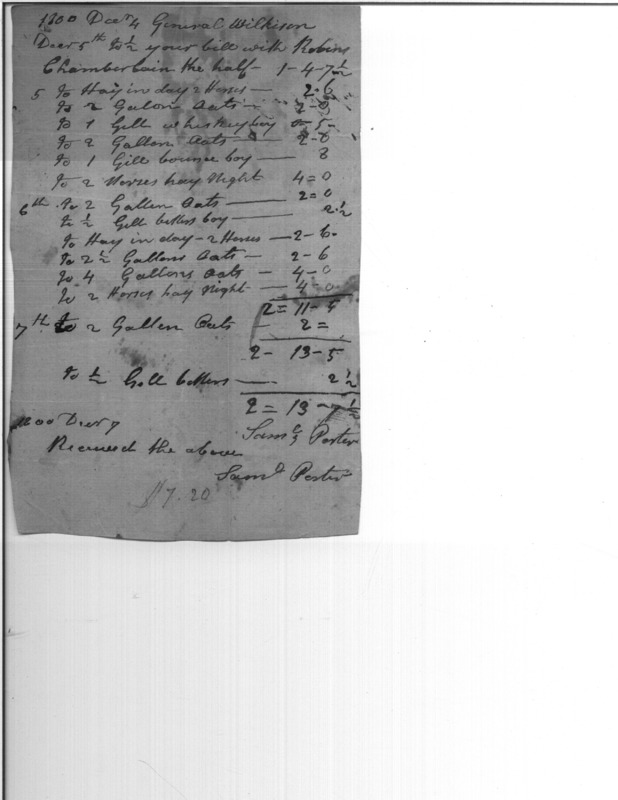 1800 Decr 4 General Wilkison
Decr 5th To ½ your bill with Robins
Chamberlain the half - 1-4-7½
5 To Hay in day 2 Horses - 2-6
To 2 Galon Oats - 2-0
To 1 Gill whiskey boy 0-5-
To 2 Gallon Oats - 2-0
To 1 Gill bounce boy - 8
To 2 Horses hay Night 4=0
6th To 2 Gallen Oats - 2=0
To ½ Gill bitters boy - 2½
To Hay in day - 2 Horses - 2-6-
To 2½ Gallons Oats - 2-6
To 4 Gallons Oats - 4-0
To 2 Horses hay Night - 4=0
2=11-5
7th To 2 Gallen Oats - 2=
2-13-5
To ½ Gill bitters - 2½
2=13-7½
Saml Porter
1800 Decr 7
Received the above
Saml Porter
$7.20